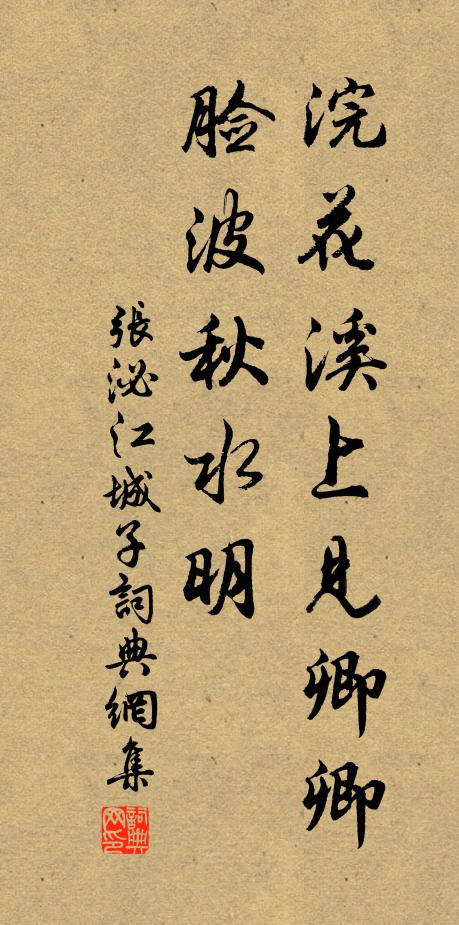 浣花溪上見卿卿
脸波秋水明
張泌江城子詞典網集
詞典网印